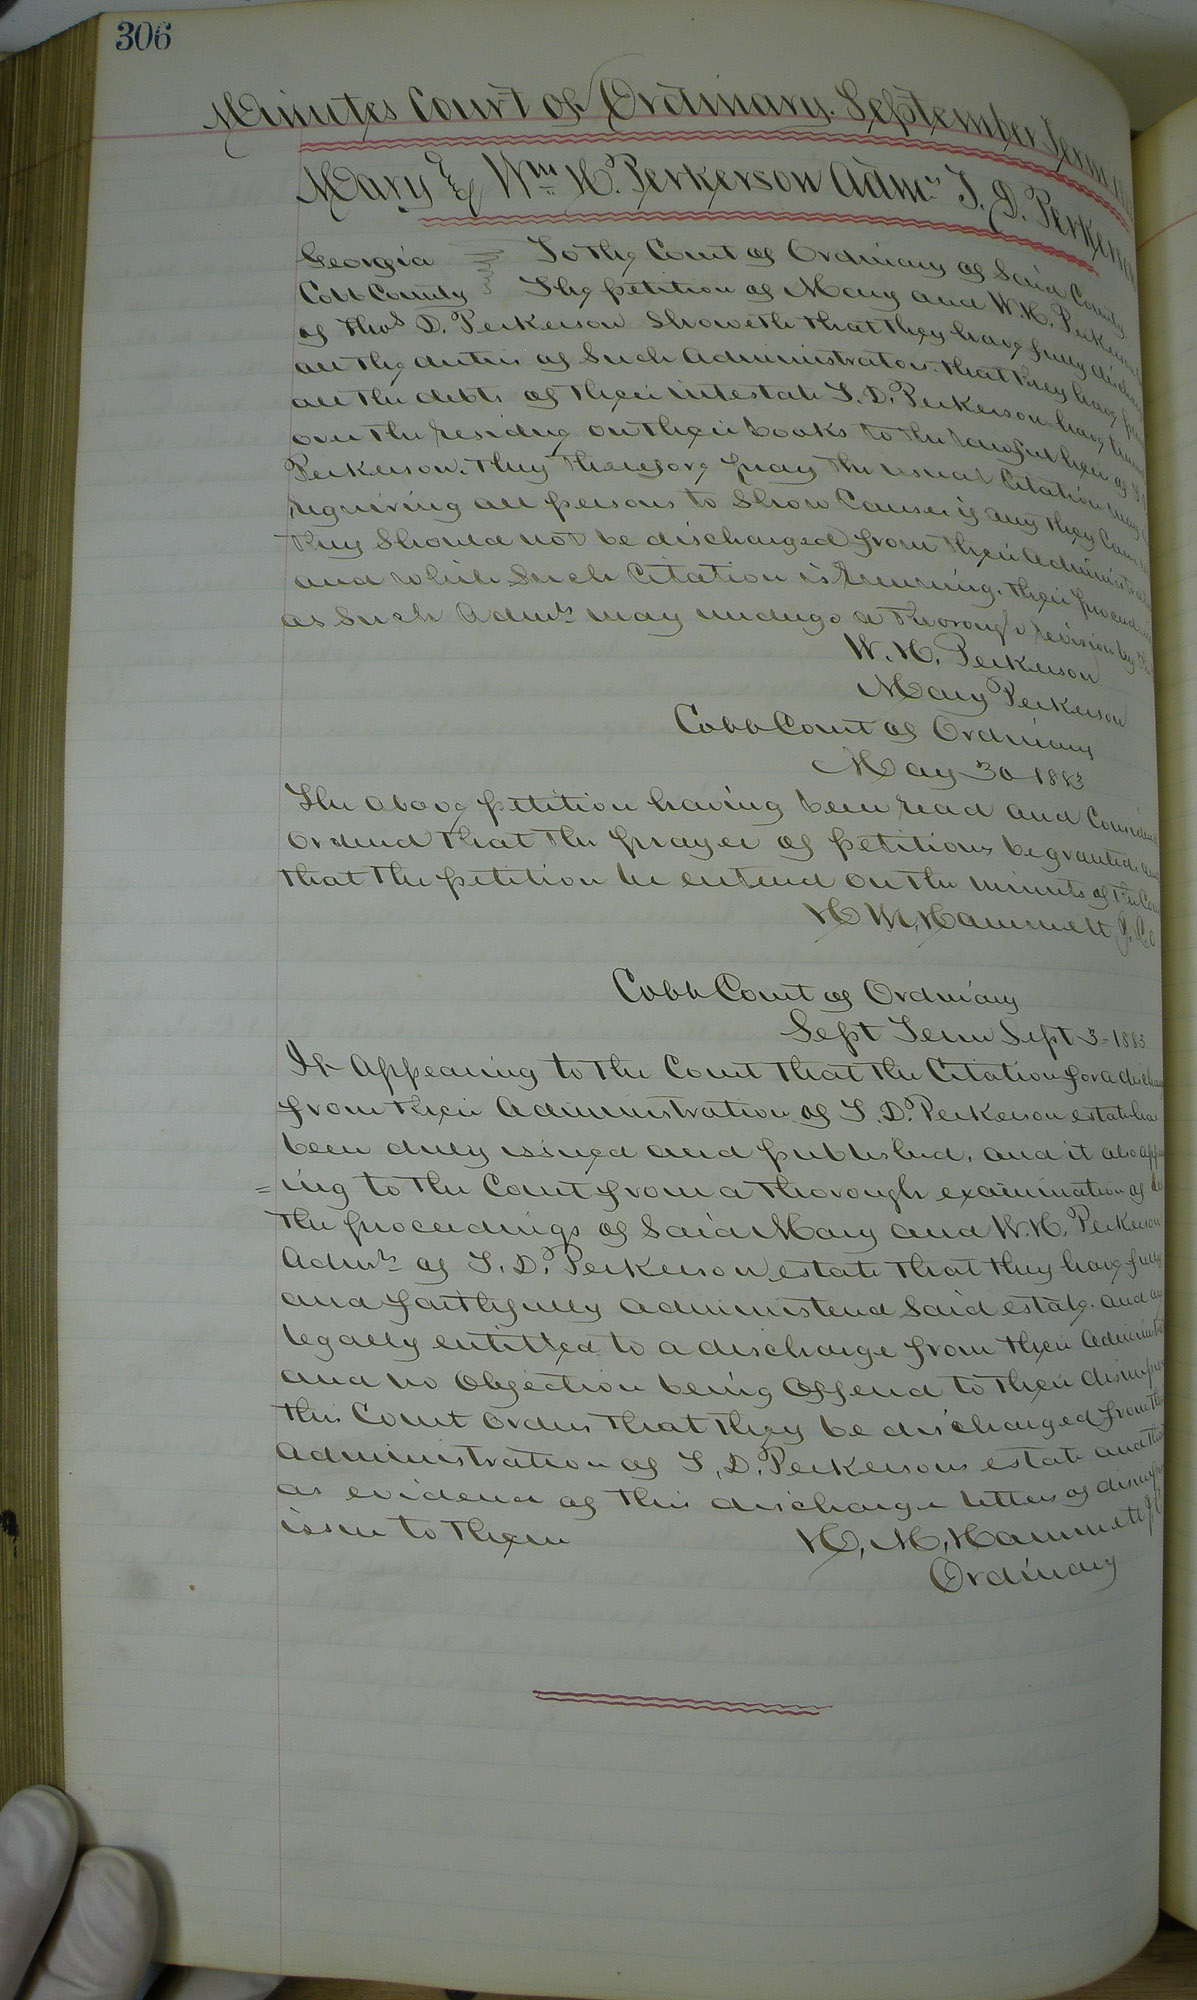 306
Minutes Court of Ordinary. September Term
Mary & Wm H. Perkerson Admrs T. D. Perkerson
Georgia To the Court of Ordinary of Said County
Cobb County The petition of Mary and W. H. Perkerson
of Thos D. Perkerson Showeth that they have fully
all the duties of Such Administrators. that they have
all the debts of their intestate T. D. Perkerson, have
over the residue on their books to the lawful heir of
Perkerson. They therefore pray the usual Citation may
requiring all persons to Show Cause if any they Can
they Should not be discharged from their
and while Such Citation is running. their
as Such Admrs may undergo a thorough revision by
W. H. Perkerson
Mary Perkerson
Cobb Court of Ordinary
May 30 1883
The above petition having been read and
Ordered that the prayer of petitions be granted and
that the petition be entered on the minutes of the
H M Hammett
Cobb Court of Ordinary
Sept Term Sept 3 - 1883
It Appearing to the Court that the Citation for a
from their Administration of T. D. Perkerson estate has
been duly issued and published, and it also
= ing to the Court from a thorough examination of
the proceedings of Said Mary and W. H. Perkerson
Admrs of T. D. Perkerson estate that they have fully
and faithfully administered Said estate. and
legally entitled to a discharge from their
and no Objection being Offered to their
this Court orders that they be discharged from
Administration of T. D. Perkersons estate and that
as evidence of this discharge letters of
issue to them H. M, Hammett
Ordinary